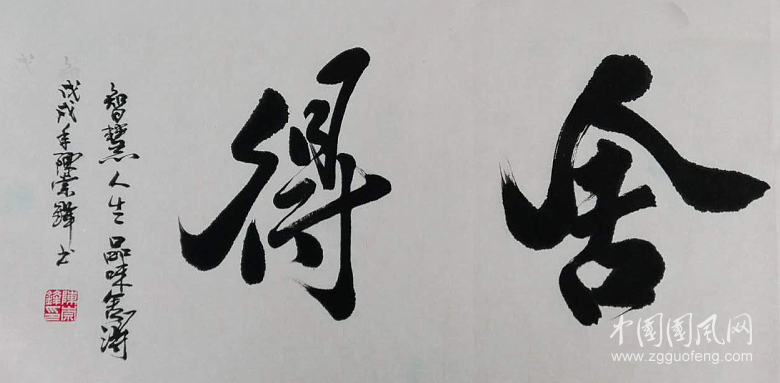 舍得
智慧人生品味舍得
戊戌年陳崇鋒书
陳崇
鋒印
中国国风网
www.zgguofeng.com